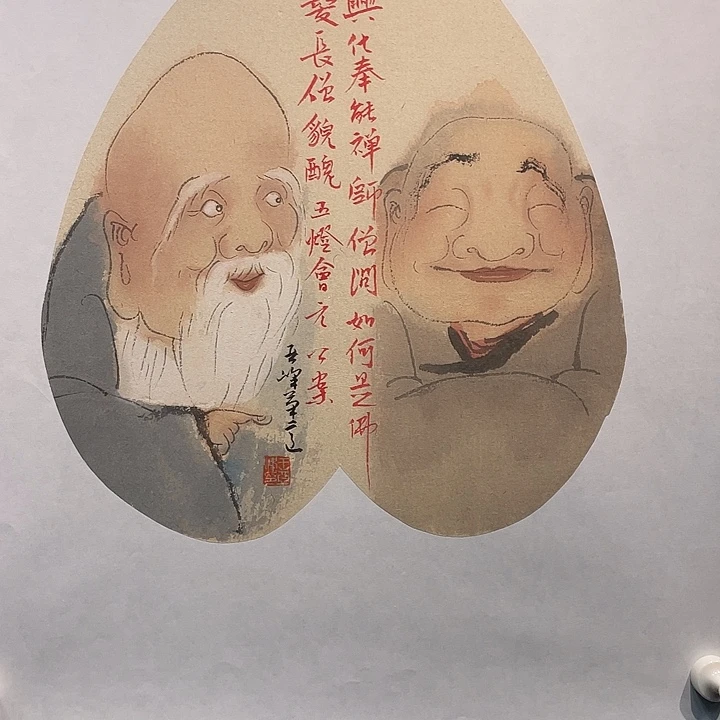 興化奉能禅師僧問如何是佛
髮長僧貌醜五燈會元公案